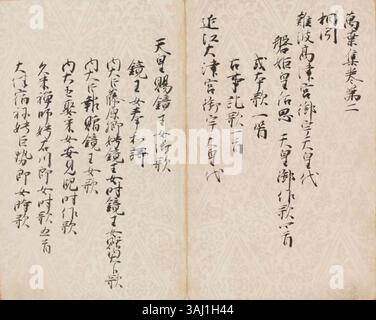 萬葉集巻第二
相聞
難波高津宮御宇天皇代
磐姫皇后思天皇御作歌四首
或本歌一首
古事記歌一首
近江大津宮御宇天皇代
天皇賜鏡王女御歌
鏡王女奉和歌
内大臣藤原卿娉鏡王女時鏡王女贈歌
内大臣報贈鏡王女歌
内大臣娶采女安見児時作歌
久米禅師娉石川郎女時歌五首
大伴宿祢娉巨勢郎女時歌
alamy
Image ID: 3AJ1H44
www.alamy.com